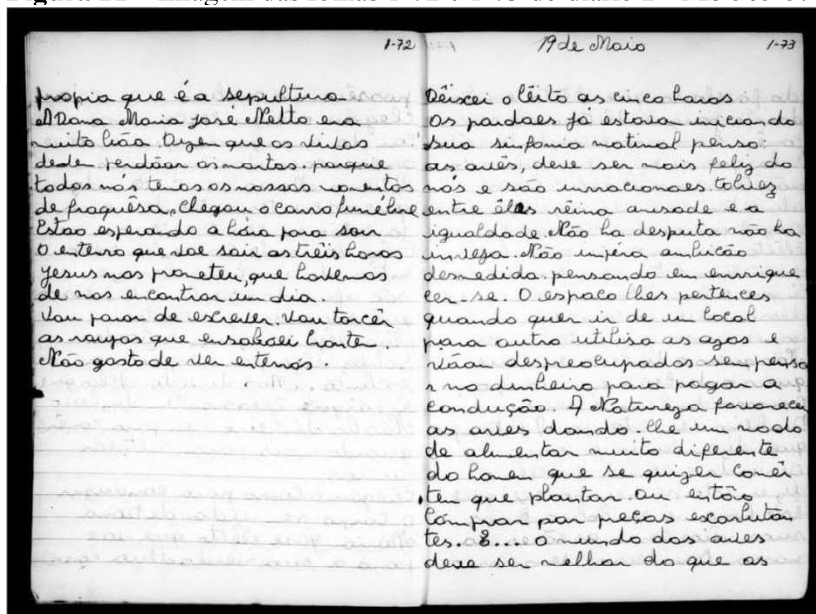 1-72
propia que é a sepultura
A Dona Maria José Netto era
muito bôa. Dizem que os vivos
devem perdôar os mortos. porque
todos nós temos os nossos momentos
de fraquêsa. Chegou o carro funebre
Estao esperando a hora para sair
O enterro que vae sair as trêis horas
Jesus nos prometeu, que havemos
de nos encontrar um dia.
Vou parar de escrever. Vou torcêr
as roupas que ensaboei hontem.
Não gosto de ver enterros.
19 de Maio
1-73
Dêixei o lêito as cinco horas
Os pardaes já estava iniciando
sua sinfonia matinal penso:
as avês, deve ser mais feliz do
nós e são irracionaes. talvez
entre êlas rêina amisade e a
igualdade. Não ha desputa não ha
inveja. Não impéra ambicão
desmedida. pensando em enrique
cer-se. O espaco lhes pertences
quando quer ir de um local
para outro utilisa as azas e
vôam despreocupados sem pensa
r no dinheiro para pagar a
condução. A Natureza favorecu
as aves dando-lhe um modo
de alimentar muito diferente
do homem que se quizer comêr
tem que plantar. Ou então
comprar por preços exorbitan
tes. E... o mundo das aves
deve ser melhor do que os